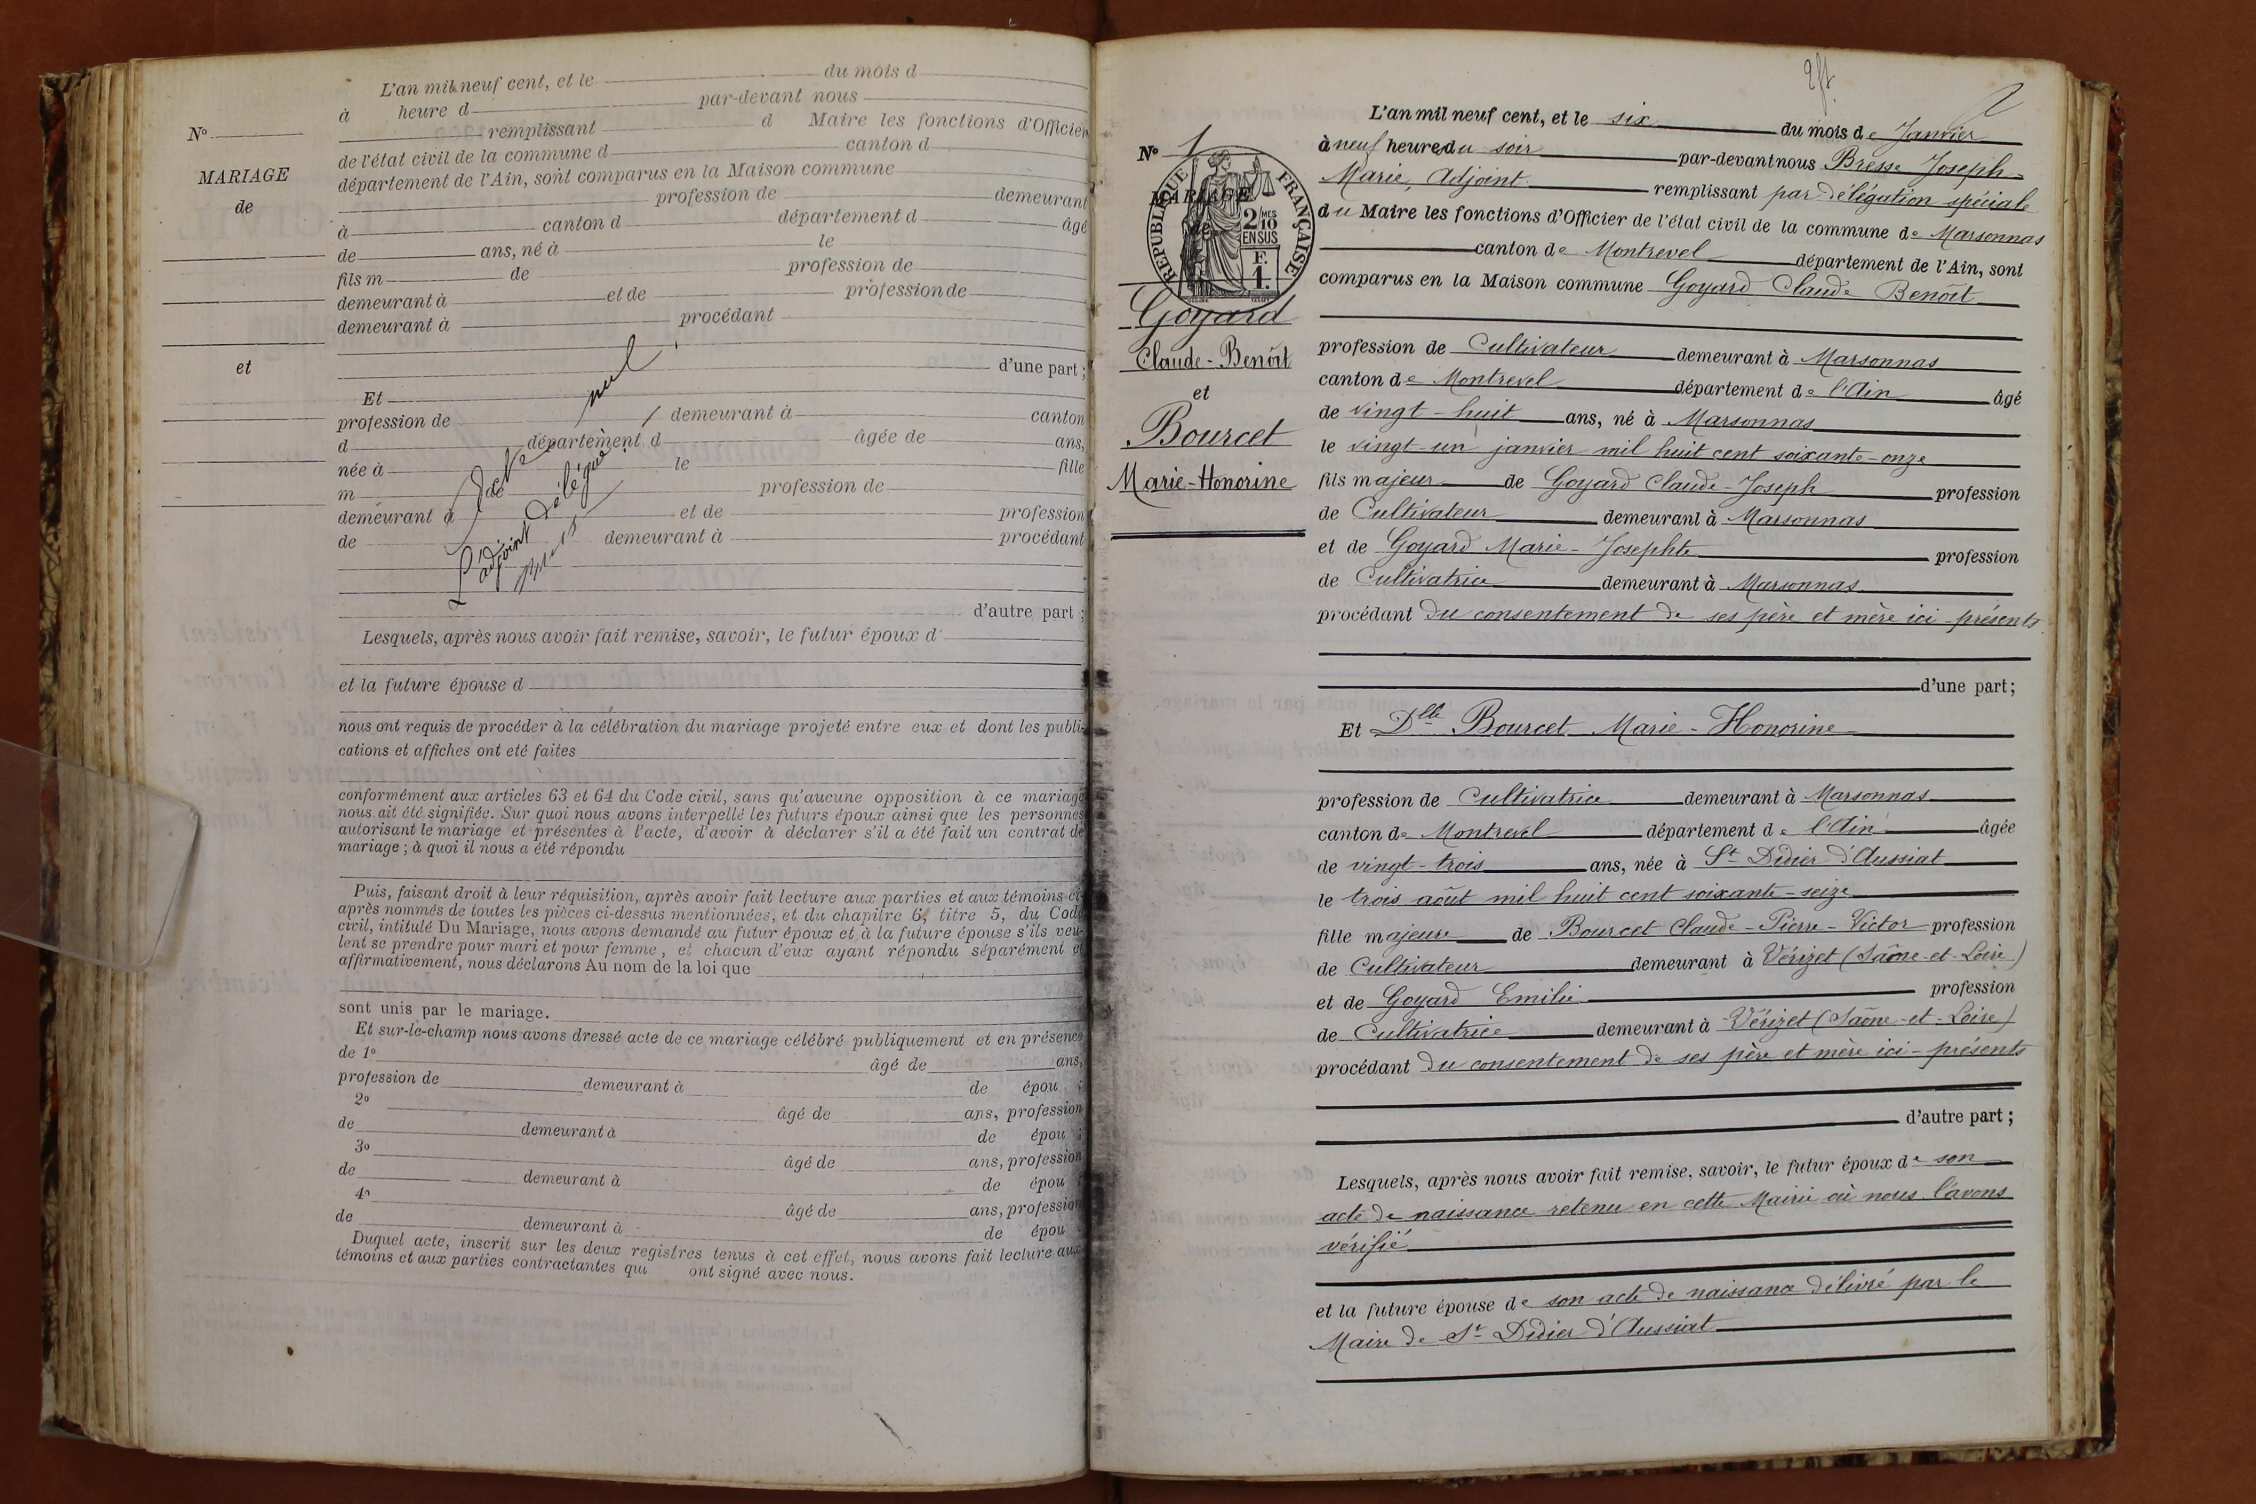 L'an mil neuf cent, et le du mois d
à heure d par-devant nous
remplissant d Maire les fonctions d'Officier
de l'état civil de la commune d canton d
département de l'Ain, sont comparus en la Maison commune
profession de demeurant
à canton d département d âgé
de ans, né à le
fils m de profession de
demeurant à et de profession de
demeurant à procédant
d'une part ;
Et
profession de demeurant à canton
d département d âgée de ans,
née à le fille
m de profession de
demeurant à et de profession
de demeurant à procédant
d'autre part ;
Lesquels, après nous avoir fait remise, savoir, le futur époux d
et la future épouse d
nous ont requis de procéder à la célébration du mariage projeté entre eux et dont les publi-
cations et affiches ont eté faites
conformément aux articles 63 et 64 du Code civil, sans qu'aucune opposition à ce mariage
nous ait été signifiée. Sur quoi nous avons interpellé les futurs époux ainsi que les personnes
autorisant le mariage et présentes à l'acte, d'avoir à déclarer s'il a été fait un contrat de
mariage ; à quoi il nous a été répondu
Puis, faisant droit à leur réquisition, après avoir fait lecture aux parties et aux témoins ci-
après nommés de toutes les pièces ci-dessus mentionnées, et du chapitre 6, titre 5, du Code
civil, intitulé Du Mariage, nous avons demandé au futur époux et à la future épouse s'ils veu-
lent se prendre pour mari et pour femme, et chacun d'eux ayant répondu séparément et
affirmativement, nous déclarons Au nom de la loi que
sont unis par le mariage.
Et sur-le-champ nous avons dressé acte de ce mariage célébré publiquement et en présence
de 1° âgé de ans,
profession de demeurant à de épou ;
2° âgé de ans, profession
de demeurant à de épou ;
3° âgé de ans, profession
de demeurant à de épou ;
4° âgé de ans, profession
de demeurant à de épou
Duquel acte, inscrit sur les deux registres tenus à cet effet, nous avons fait lecture aux
témoins et aux parties contractantes qui ont signé avec nous.
N°
MARIAGE
de
et
nul
L'adjoint Délégué
N° 1
MARIAGE
de
RÉPUBLIQUE FRANÇAISE
2 MES
10
EN SUS
F.
1.
Goyard
Claude-Benôit
et
Bourcet
Marie-Honorine
2
L'an mil neuf cent, et le six du mois de Janvier
à neuf heures du soir par-devant nous Bresse Joseph-
Marie, Adjoint remplissant par délégation spéciale
du Maire les fonctions d'Officier de l'état civil de la commune de Marsonnas
canton de Montrevel département de l'Ain, sont
comparus en la Maison commune Goyard Claude Benôit
profession de Cultivateur demeurant à Marsonnas
canton de Montrevel département de l'Ain âgé
de vingt-huit ans, né à Marsonnas
le vingt-un janvier mil huit cent soixante-onze
fils majeur de Goyard Claude-Joseph profession
de Cultivateur demeurant à Marsonnas
et de Goyard Marie-Josephte profession
de Cultivatrice demeurant à Marsonnas
procédant du consentement de ses père et mère ici-présents
d'une part ;
Et Dlle Bourcet Marie-Honorine
profession de Cultivatrice demeurant à Marsonnas
canton de Montrevel département de l'Ain âgée
de vingt-trois ans, née à St Didier d'Aussiat
le trois août mil huit cent soixante-seize
fille majeure de Bourcet Claude-Pierre-Victor profession
de Cultivateur demeurant à Vérizet (Saône-et-Loire)
et de Goyard Emilie profession
de Cultivatrice demeurant à Vérizet (Saône-et-Loire)
procédant du consentement de ses père et mère ici-présents
d'autre part ;
Lesquels, après nous avoir fait remise, savoir, le futur époux de son
acte de naissance retenu en cette Mairie où nous l'avons
vérifié
et la future épouse de son acte de naissance délivré par le
Maire de St Didier d'Aussiat